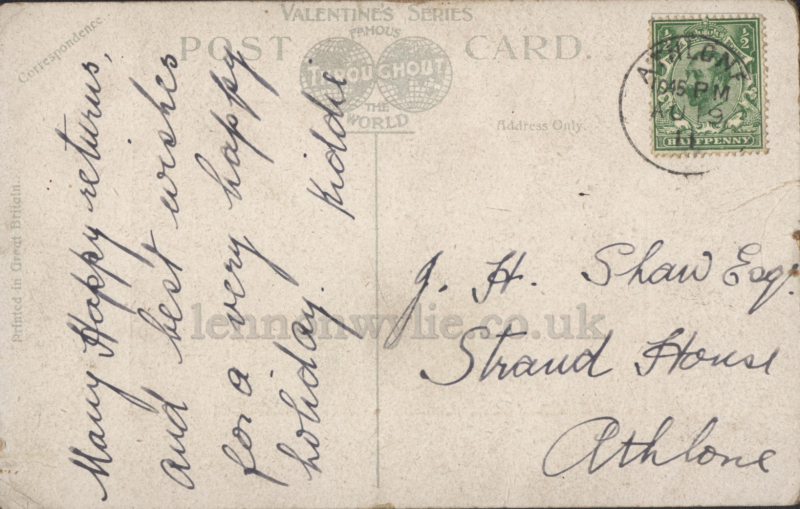 VALENTINE'S SERIES
FAMOUS
POST CARD.
THROUGHOUT
THE
WORLD
Correspondence.
Address Only.
Printed in Great Britain.
ATHLONE
10 45 PM
AU
11
½ ½
HALFPENNY
Many Happy returns,
and best wishes
for a very happy
holiday. Kiddie
J. H. Shaw Esq.
Strand House
Athlone
lennonwylie.co.uk